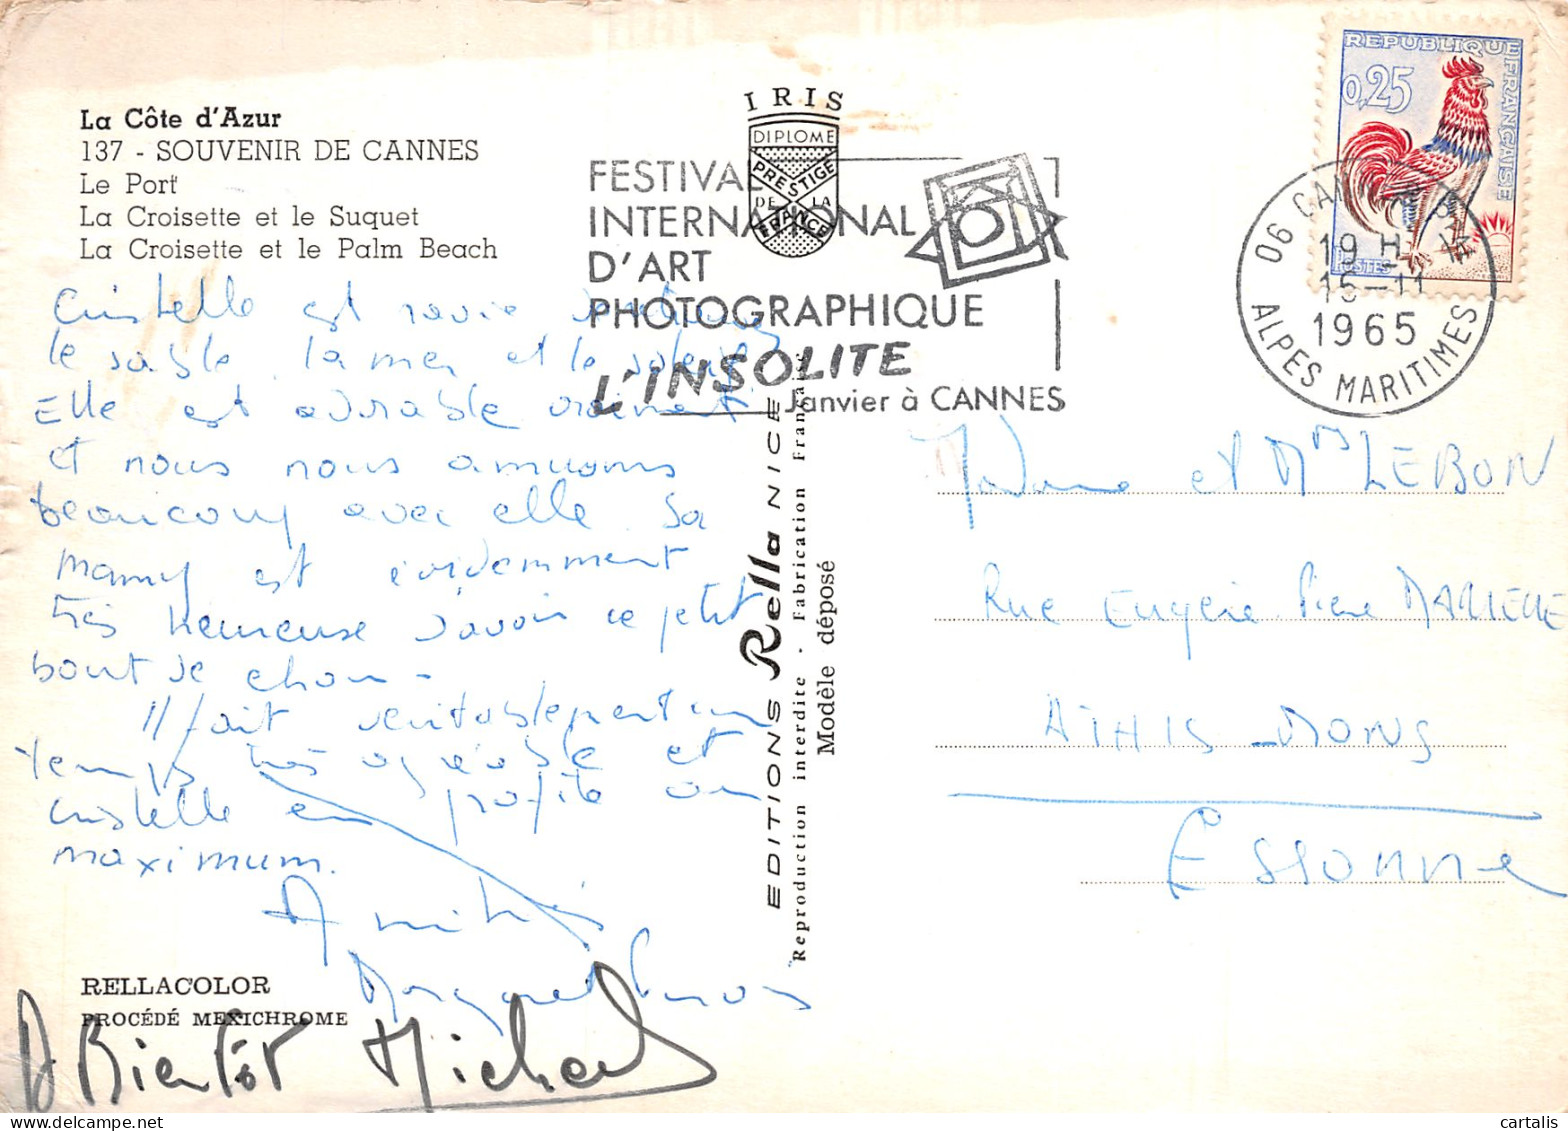 La Côte d'Azur
137 - SOUVENIR DE CANNES
Le Port
La Croisette et le Suquet
La Croisette et le Palm Beach
Cristelle est ravie
le sable la mer et le soleil
Elle est adorable vraiment
et nous nous amusons
beaucoup avec elle. Sa
mamy est évidemment
très heureuse d'avoir ce petit
bout de chou -
Il fait véritablement un
temps très agréable et
Cristelle en profite au
maximum.
Amitiés
A Bientôt Michel
RELLACOLOR
PROCÉDÉ MEXICHROME
IRIS
DIPLOME
PRESTIGE
DE LA
FRANCE
FESTIVAL
INTERNATIONAL
D'ART
PHOTOGRAPHIQUE
L'INSOLITE
Janvier à CANNES
EDITIONS Rella NICE
Reproduction interdite - Fabrication Française
Modèle déposé
REPUBLIQUE
FRANÇAISE
0,25
POSTES
06 CANNES
19 H
15-11
1965
ALPES MARITIMES
Madame et Mrs LEBON
Rue Eugène Pierre
ATHIS-MONS
Essonne
cartalis